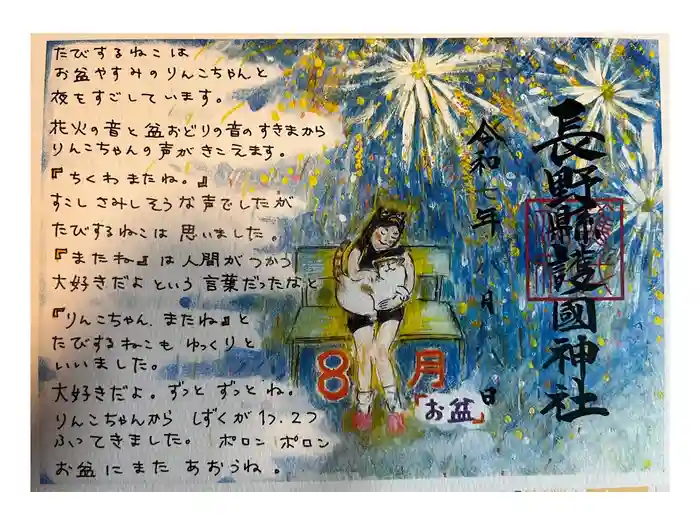 たびするねこは
お盆やすみのりんこちゃんと
夜をすごしています。
花火の音と盆おどりの音のすきまから
りんこちゃんの声がきこえます。
『ちくわまたね。』
すこしさみしそうな声でしたが
たびするねこは思いました。
『またね』は人間がつかう
大好きだよという言葉だったなと
『りんこちゃん、またね』と
たびするねこもゆっくりと
いいました。
大好きだよ。ずっとずっとね。
りんこちゃんから しずくが1つ、2つ
ふってきました。 ポロン ポロン
お盆にまたあおうね。
長野縣護國神社
令和七年八月八日
8月
「お盆」